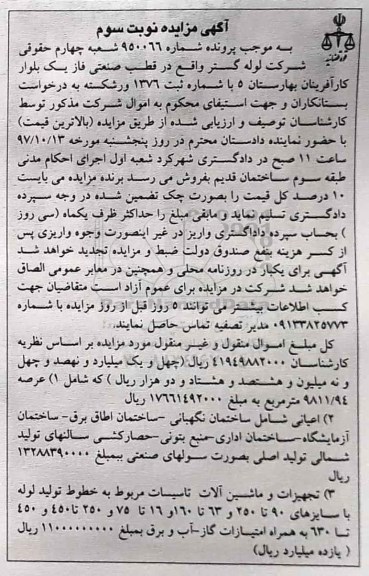 آگهی مزایده نوبت سوم
به موجب پرونده شماره ۹۵۰۰۶۶ شعبه چهارم حقوقی
شرکت لوله گستر واقع در قطب صنعتی فاز یک بلوار
کارآفرینان بهارستان ۵ با شماره ثبت ۱۳۷۶ ورشکسته به درخواست
بستانکاران و جهت استیفای محکوم به اموال شرکت مذکور توسط
کارشناسان توصیف و ارزیابی شده از طریق مزایده (بالاترین قیمت)
با حضور نماینده دادستان محترم در روز پنجشنبه مورخه ۹۷/۱۰/۱۳
ساعت ۱۱ صبح در دادگستری شهرکرد شعبه اول اجرای احکام مدنی
طبقه سوم ساختمان قدیم بفروش می رسد برنده مزایده می بایست
۱۰ درصد کل قیمت را بصورت چک تضمین شده در وجه سپرده
دادگستری تسلیم نماید و مابقی مبلغ را حداکثر ظرف یکماه (سی روز
) بحساب سپرده داداگستری واریز در غیر اینصورت وجوه واریزی پس
از کسر هزینه بنفع صندوق دولت ضبط و مزایده تجدید خواهد شد
آگهی برای یکبار در روزنامه محلی و همچنین در معابر عمومی الصاق
خواهد شد شرکت در مزایده برای عموم آزاد است متقاضیان جهت
کسب اطلاعات بیشتر می توانند ۵ روز قبل از روز مزایده با شماره
۰۹۱۳۳۸۲۵۷۷۳ مدیر تصفیه تماس حاصل نمایند
کل مبلغ اموال منقول و غیر منقول مورد مزایده بر اساس نظریه
کارشناسان ۴۱۹۴۹۸۸۲۰۰۰ ریال (چهل و یک میلیارد و نهصد و چهل
و نه میلیون و هشتصد و هشتاد و دو هزار ریال ) که شامل ۱) عرصه
۹۸۱۱/۹۴ مترمربع به مبلغ ۱۷۶۶۱۴۹۲۰۰۰ ریال
۲) اعیانی شامل ساختمان نگهبانی -ساختمان اطاق برق- ساختمان
آزمایشگاه-ساختمان اداری-منبع بتونی-حصارکشی سالنهای تولید
شمالی تولید اصلی بصورت سولهای صنعتی بمبلغ ۱۳۲۸۸۳۹۰۰۰۰
ریال
۳) تجهیزات و ماشین آلات تاسیسات مربوط به خطوط تولید لوله
با سایزهای ۹۰ تا ۲۵۰ و ۶۳ تا ۱۶۰و ۱۶ تا ۷۵ و ۲۵۰ تا ۴۵۰ و ۴۵۰
تا ۶۳۰ به همراه امتیازات گاز-آب و برق بمبلغ ۱۱۰۰۰۰۰۰۰۰۰ ریال
( یازده میلیارد ریال)